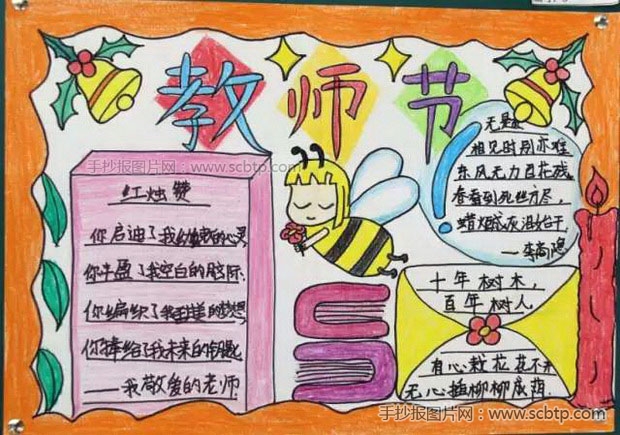 教师节
手抄报图片网：www.scbtp.com
红烛赞
你启迪了我幼稚的心灵
你丰盈了我空白的脑际
你编织了我甜美的梦想
你捧给了我未来的钥匙
——我敬爱的老师
无
相见时别亦难
东风无力百花残
春蚕到死丝方尽，
蜡成灰泪始干
——李商隐
十年树木，
百年树人
有心栽花花不开
无心插柳柳成荫
手抄报图片网：www.scbtp.com